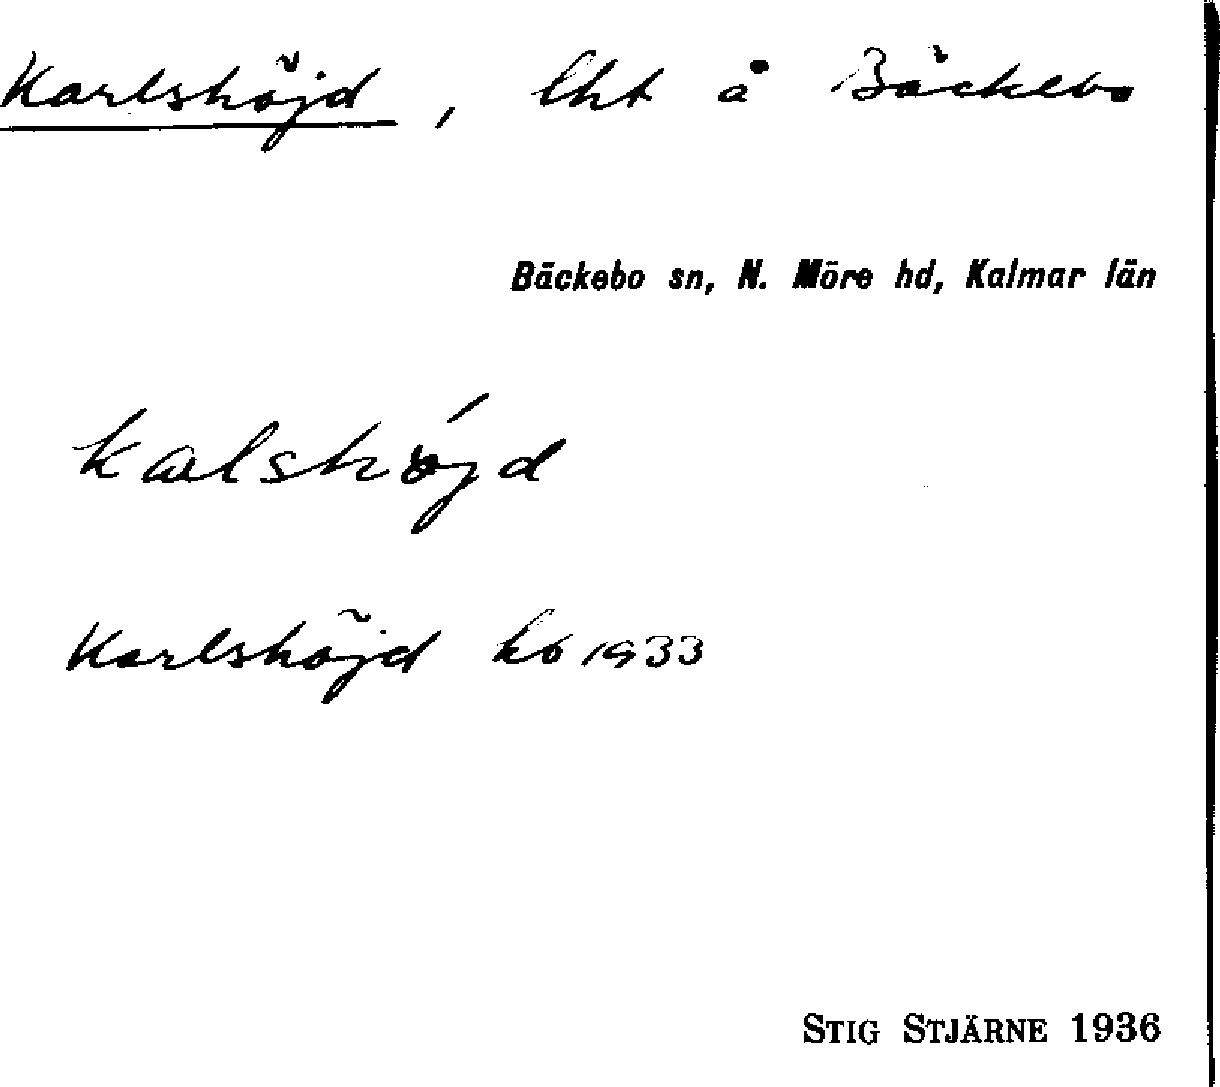 Karlshöjd, lht å Bäckebo
Bäckebo sn, N. Möre hd, Kalmar län
kalshöjd
Karlshöjd kb 1933
STIG STJÄRNE 1936